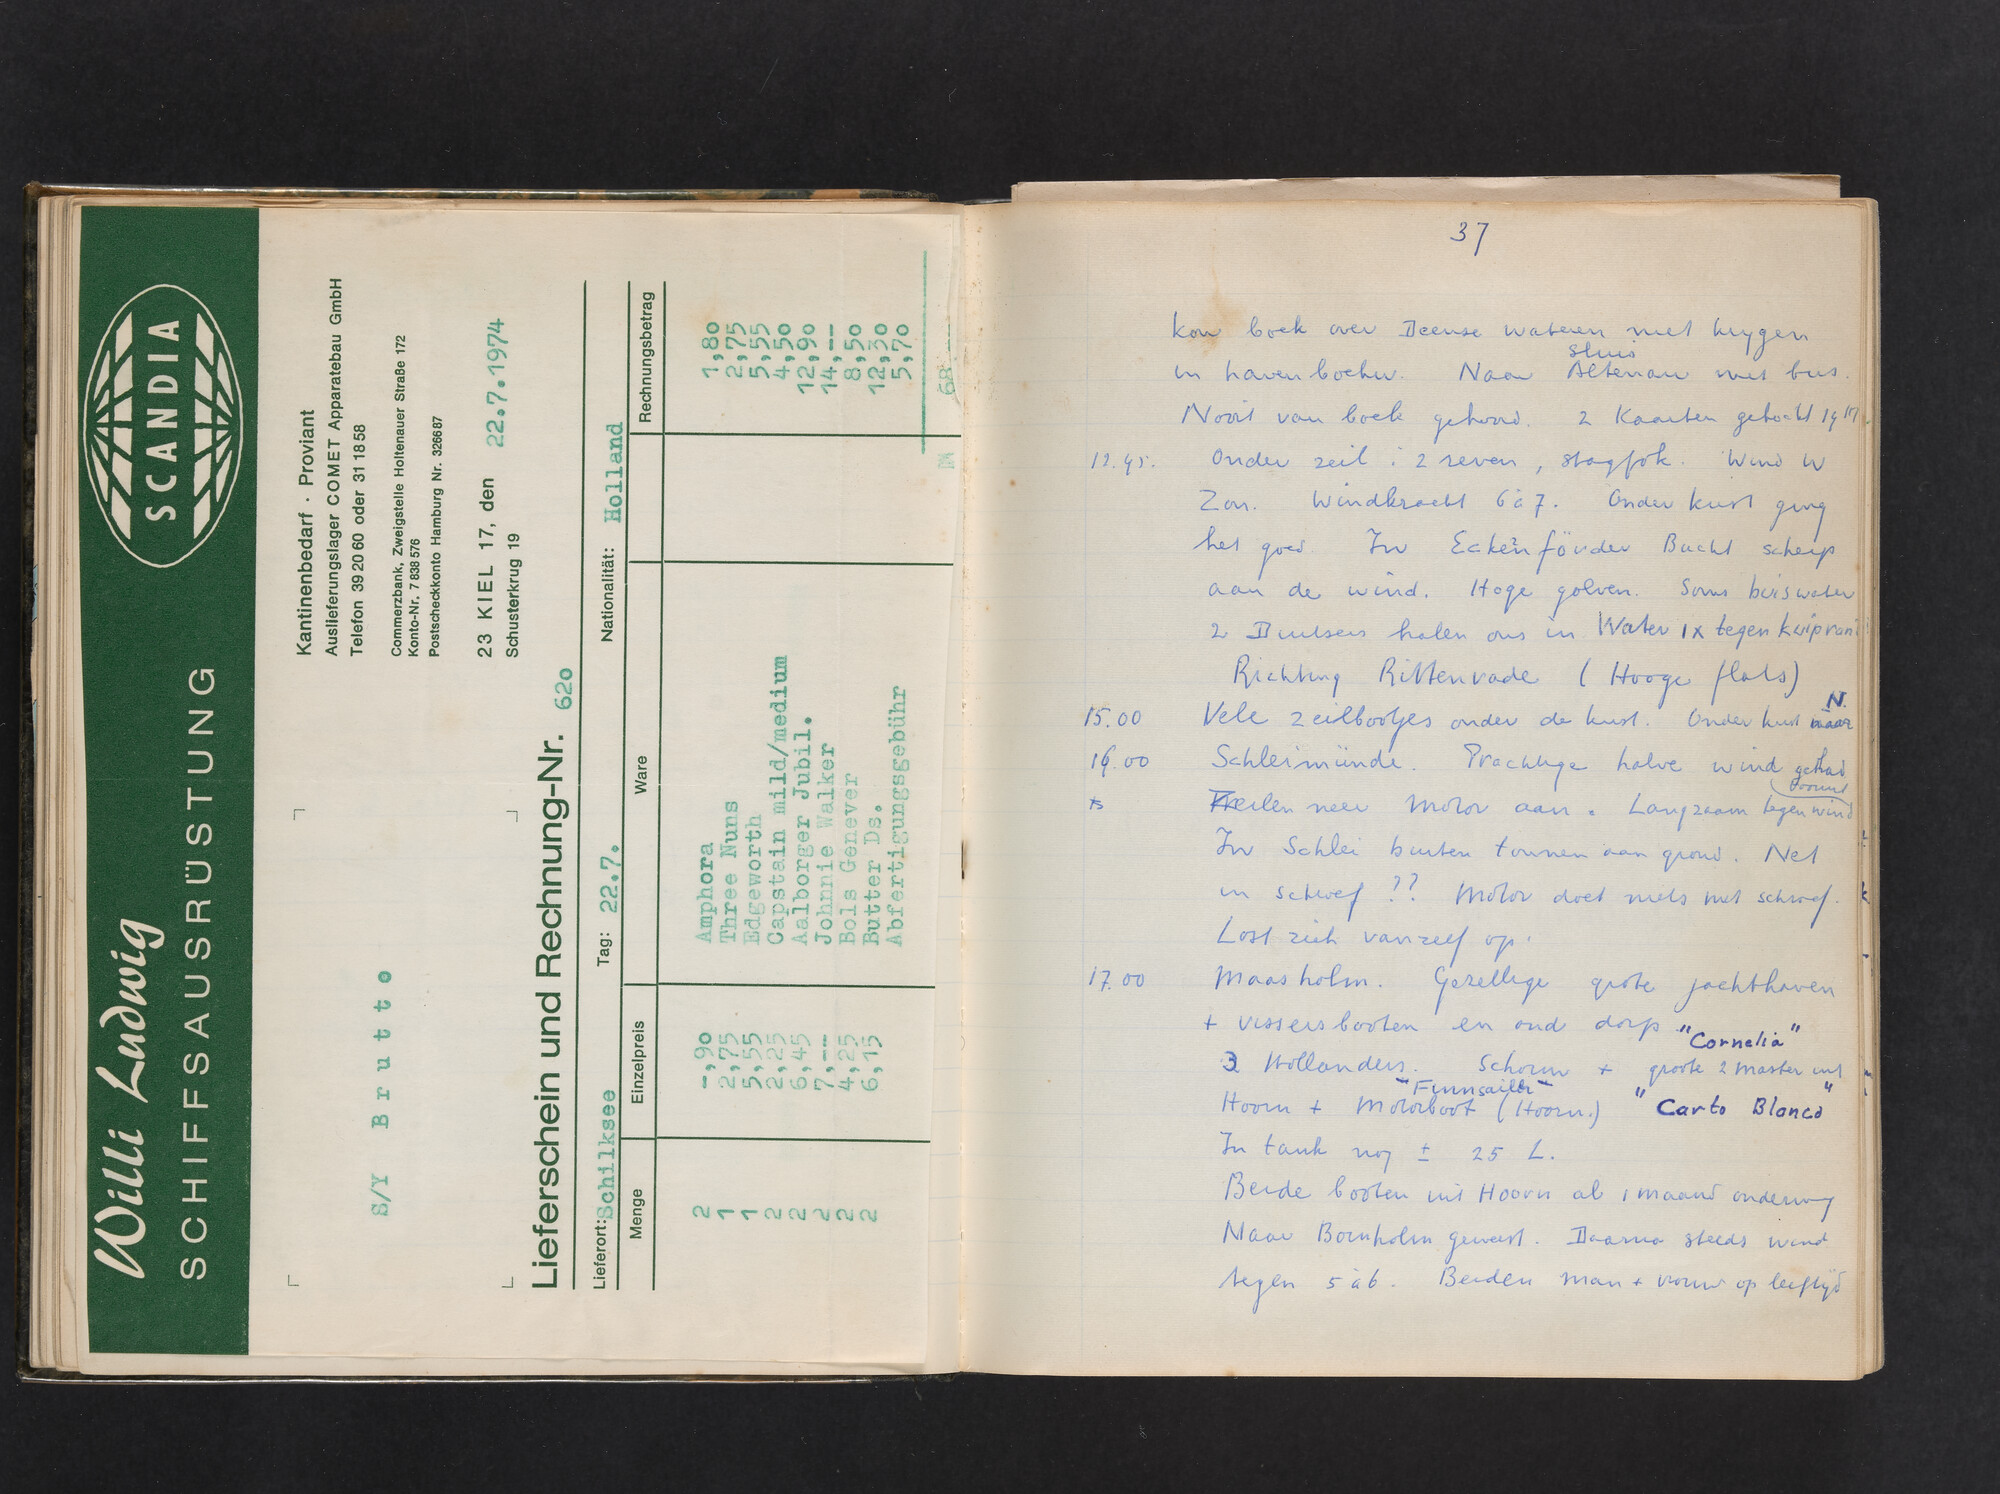 Willi Ludwig
SCHIFFSAUSRÜSTUNG
SCANDIA
Kantinenbedarf · Proviant
Auslieferungslager COMET Apparatebau GmbH
Telefon 39 20 60 oder 31 18 58
Commerzbank, Zweigstelle Holtenauer Straße 172
Konto-Nr. 7 838 576
Postscheckkonto Hamburg Nr. 3266 87
23 KIEL 17, den 22.7.1974
Schusterkrug 19
S/Y Brutto
Lieferschein und Rechnung-Nr. 620
Lieferort: Schilksee Tag: 22.7. Nationalität: Holland
Menge Einzelpreis Ware Rechnungsbetrag
2 -,90 Amphora 1,80
1 2,75 Three Nuns 2,75
1 5,55 Edgeworth 5,55
2 2,25 Capstain mild/medium 4,50
2 6,45 Aalborger Jubil. 12,90
2 7,-- Johnnie Walker 14,--
2 4,25 Bols Genever 8,50
2 6,15 Butter Ds. 12,30
Abfertigungsgebühr 5,70
DM 68
37
kon boek over Deense wateren niet krygen
sluis
in havenboeken. Naar Altenau met bus.
Nooit van boek gehoord. 2 Kaarten gekocht
12.45. Onder zeil : 2 reven, stagfok. Wind W
Zon. Windkracht 6 à 7. Onder kust ging
het goed. In Eckenförder Bucht scherp
aan de wind. Hoge golven. Soms buiswater
2 Duitsers halen ons in. Water 1x tegen kuiprand
Richting (Hooge flats)
15.00 Vele zeilbootjes onder de kust. Onder kust naar N.
16.00 Schleimünde. Prachtige halve wind gehad
Zeilen neer Motor aan. Langzaam tegen wind
In Schlei buiten tonnen aan grond. Net
in schroef ?? Motor doet niets met schroef.
Lost zich vanzelf op.
17.00 Maasholm. Gezellige grote jachthaven
+ vissersboten en oud dorp "Cornelia"
3 Hollanders. + groote 2 master uit
"Finnsailer"
Hoorn + Motorboot (Hoorn.) "Carto Blanco"
In tank nog ± 25 L.
Beide boten uit Hoorn al 1 maand onderweg
Naar Bornholm geweest. Daarna steeds wind
tegen 5 à 6. Beiden man + vrouw op leeftijd